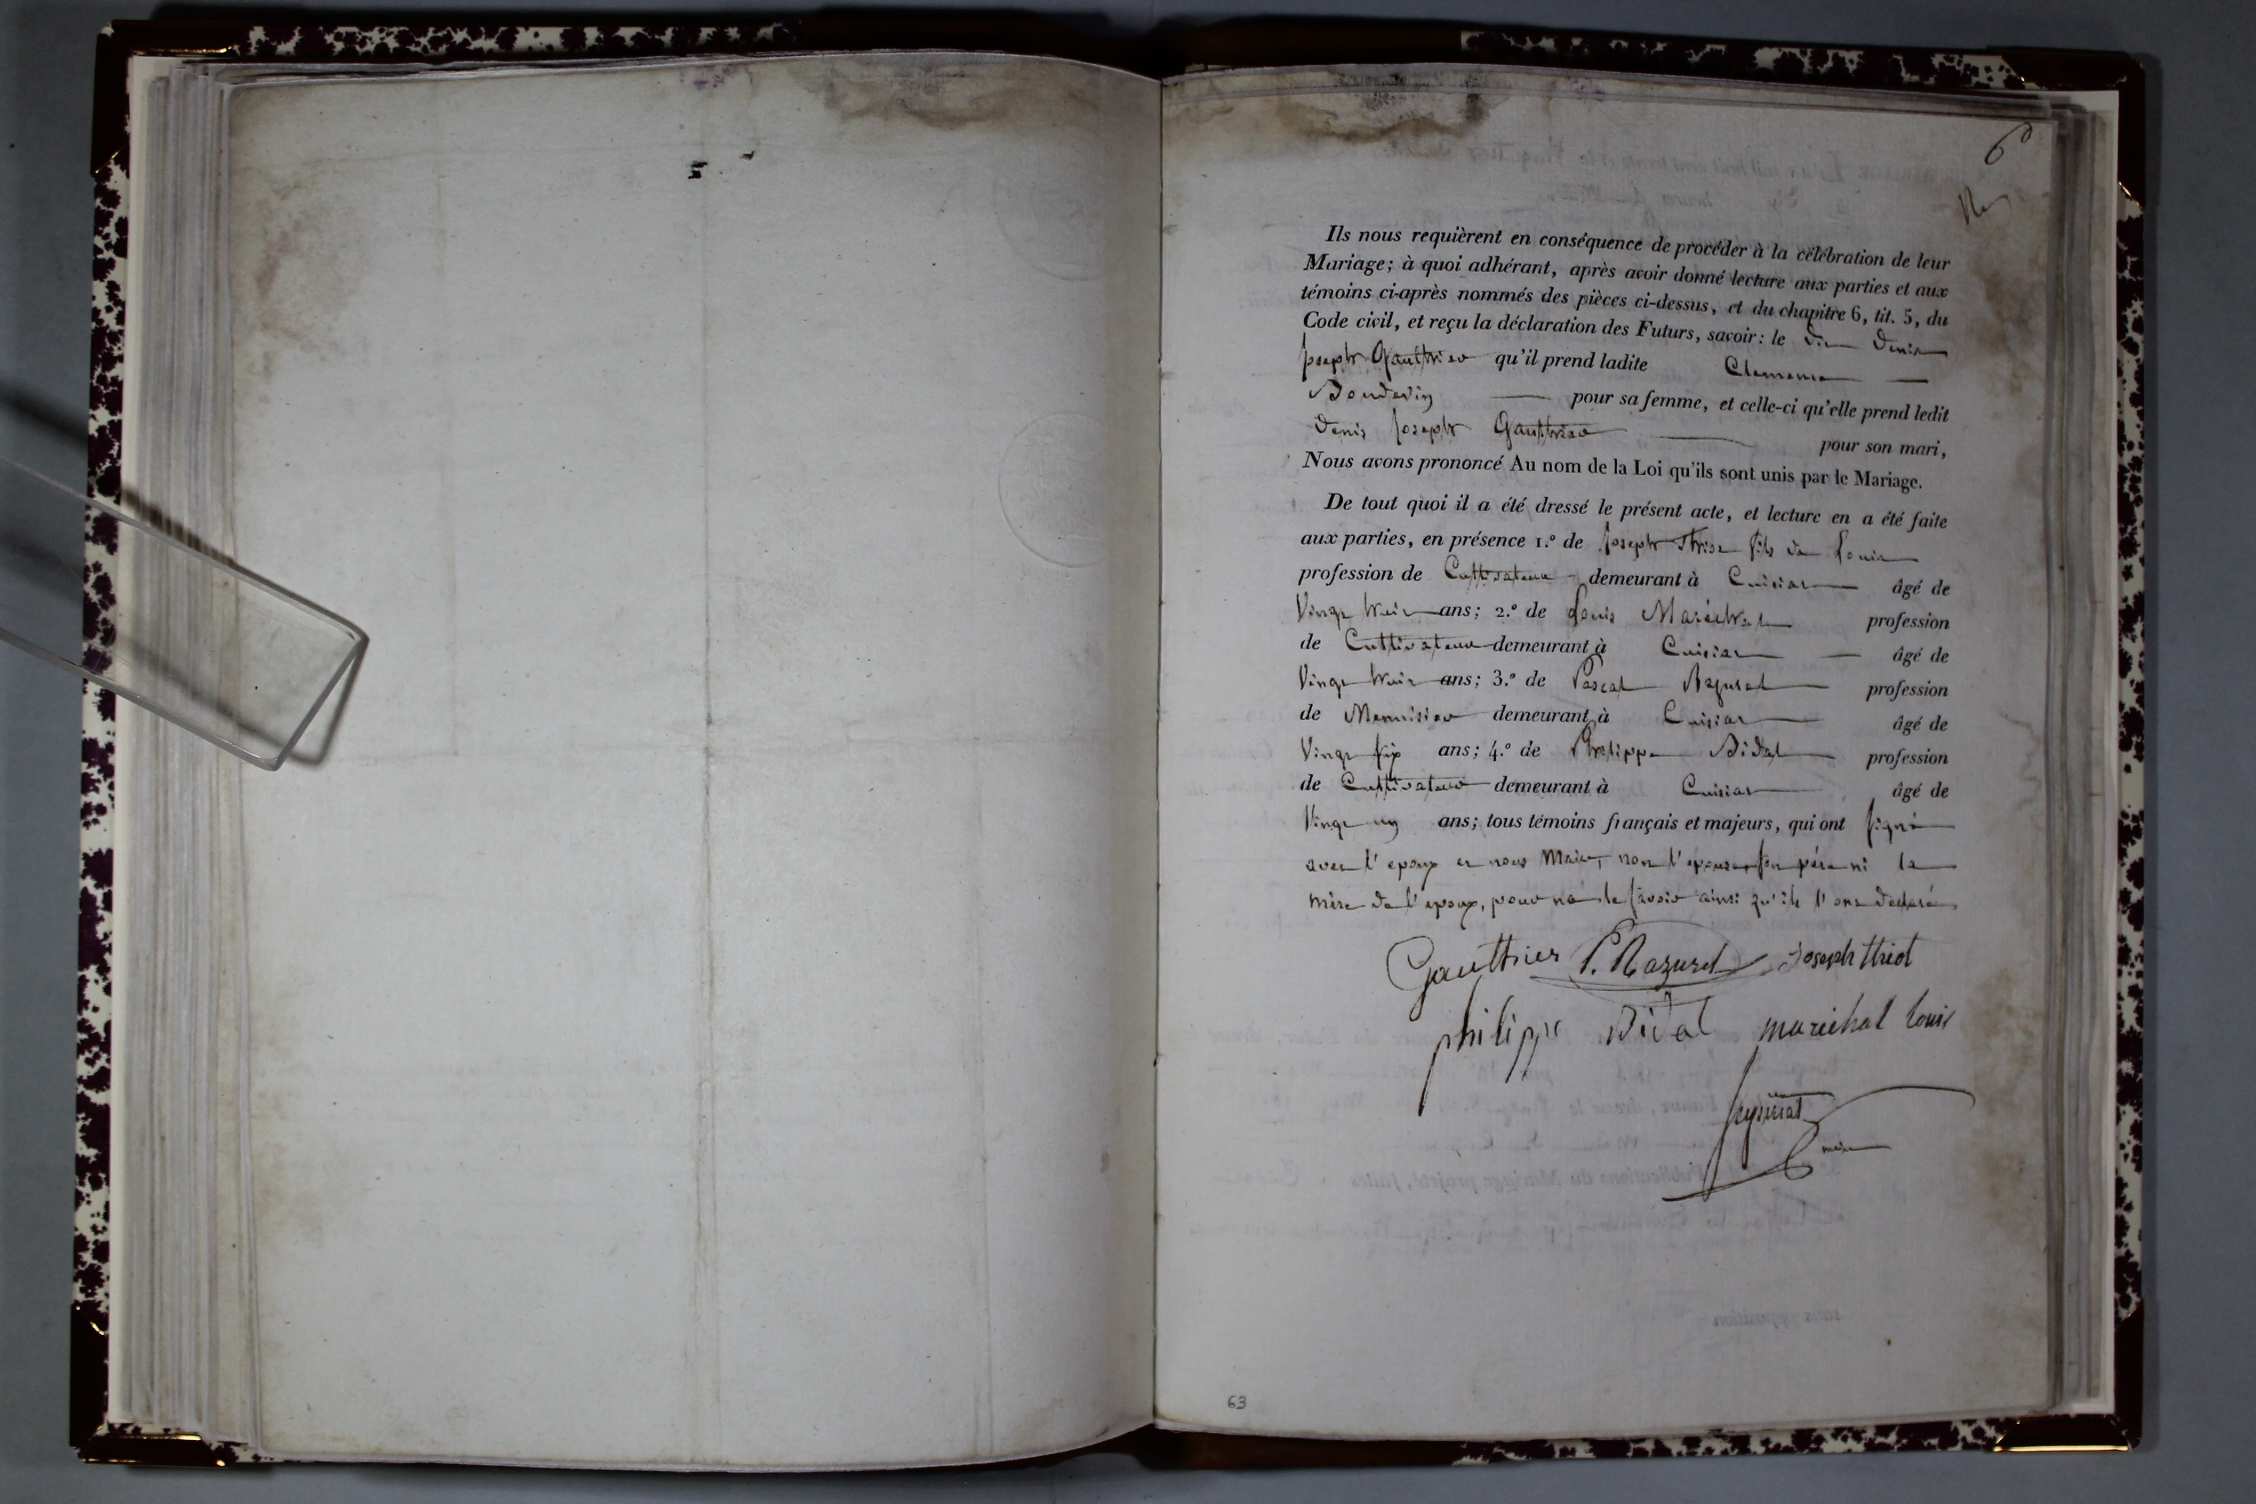 60
Ils nous requièrent en conséquence de procéder à la célébration de leur
Mariage; à quoi adhérant, après avoir donné lecture aux parties et aux
témoins ci-après nommés des pièces ci-dessus, et du chapitre 6, tit. 5, du
Code civil, et reçu la déclaration des Futurs, savoir: le dit Denis
Joseph Gauthier qu'il prend ladite Clemence
Boudevin pour sa femme, et celle-ci qu'elle prend ledit
Denis Joseph Gauthier pour son mari,
Nous avons prononcé Au nom de la Loi qu'ils sont unis par le Mariage.
De tout quoi il a été dressé le présent acte, et lecture en a été faite
aux parties, en présence 1.º de Joseph fils de Louis
profession de Cultivateur demeurant à Cuisiat âgé de
Vingt huit ans; 2.º de Louis Maréchal profession
de Cultivateur demeurant à Cuisiat âgé de
Vingt huit ans; 3.º de Pascal Razurel profession
de Menuisier demeurant à Cuisiat âgé de
Vingt six ans; 4.º de Philippe Bidal profession
de Cultivateur demeurant à Cuisiat âgé de
Vingt un ans; tous témoins français et majeurs, qui ont signé
avec l'epoux et nous Maire, non l'epouse, son pére ni la
mère de l'epoux, pour ne le savoir ainsi qu'ils l'ont déclaré
Gauthier P. Razurel Joseph thiot
philippe Bidal maréchal louis
maire
63